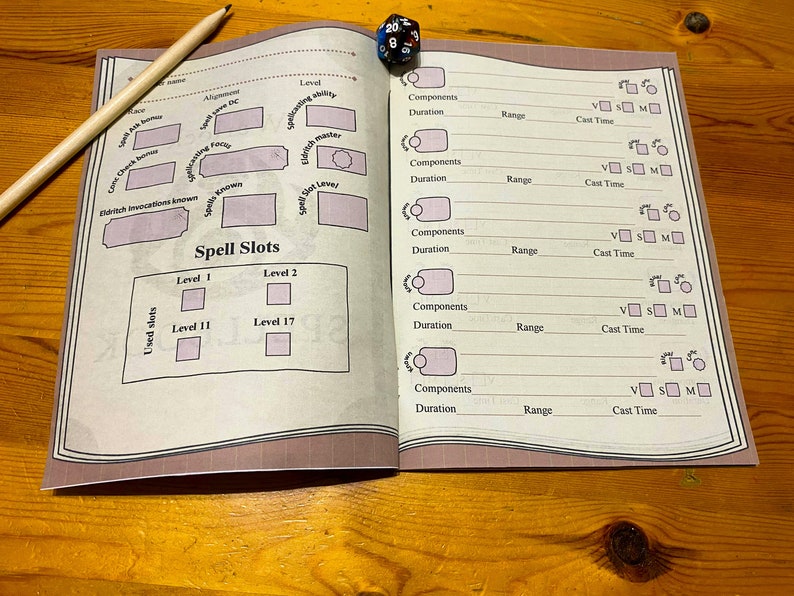 name
Race Alignment Level
Spell Atk bonus Spell save DC Spellcasting ability
Conc Check bonus Spellcasting Focus Eldritch master
Eldritch Invocations known Spells Known Spell Slot Level
Spell Slots
Used slots
Level 1 Level 2
Level 11 Level 17
20
8
16
Known Ritual Conc
Components V S M
Duration Range Cast Time
Known Ritual Conc
Components V S M
Duration Range Cast Time
Known Ritual Conc
Components V S M
Duration Range Cast Time
Known Ritual Conc
Components V S M
Duration Range Cast Time
Known Ritual Conc
Components V S M
Duration Range Cast Time